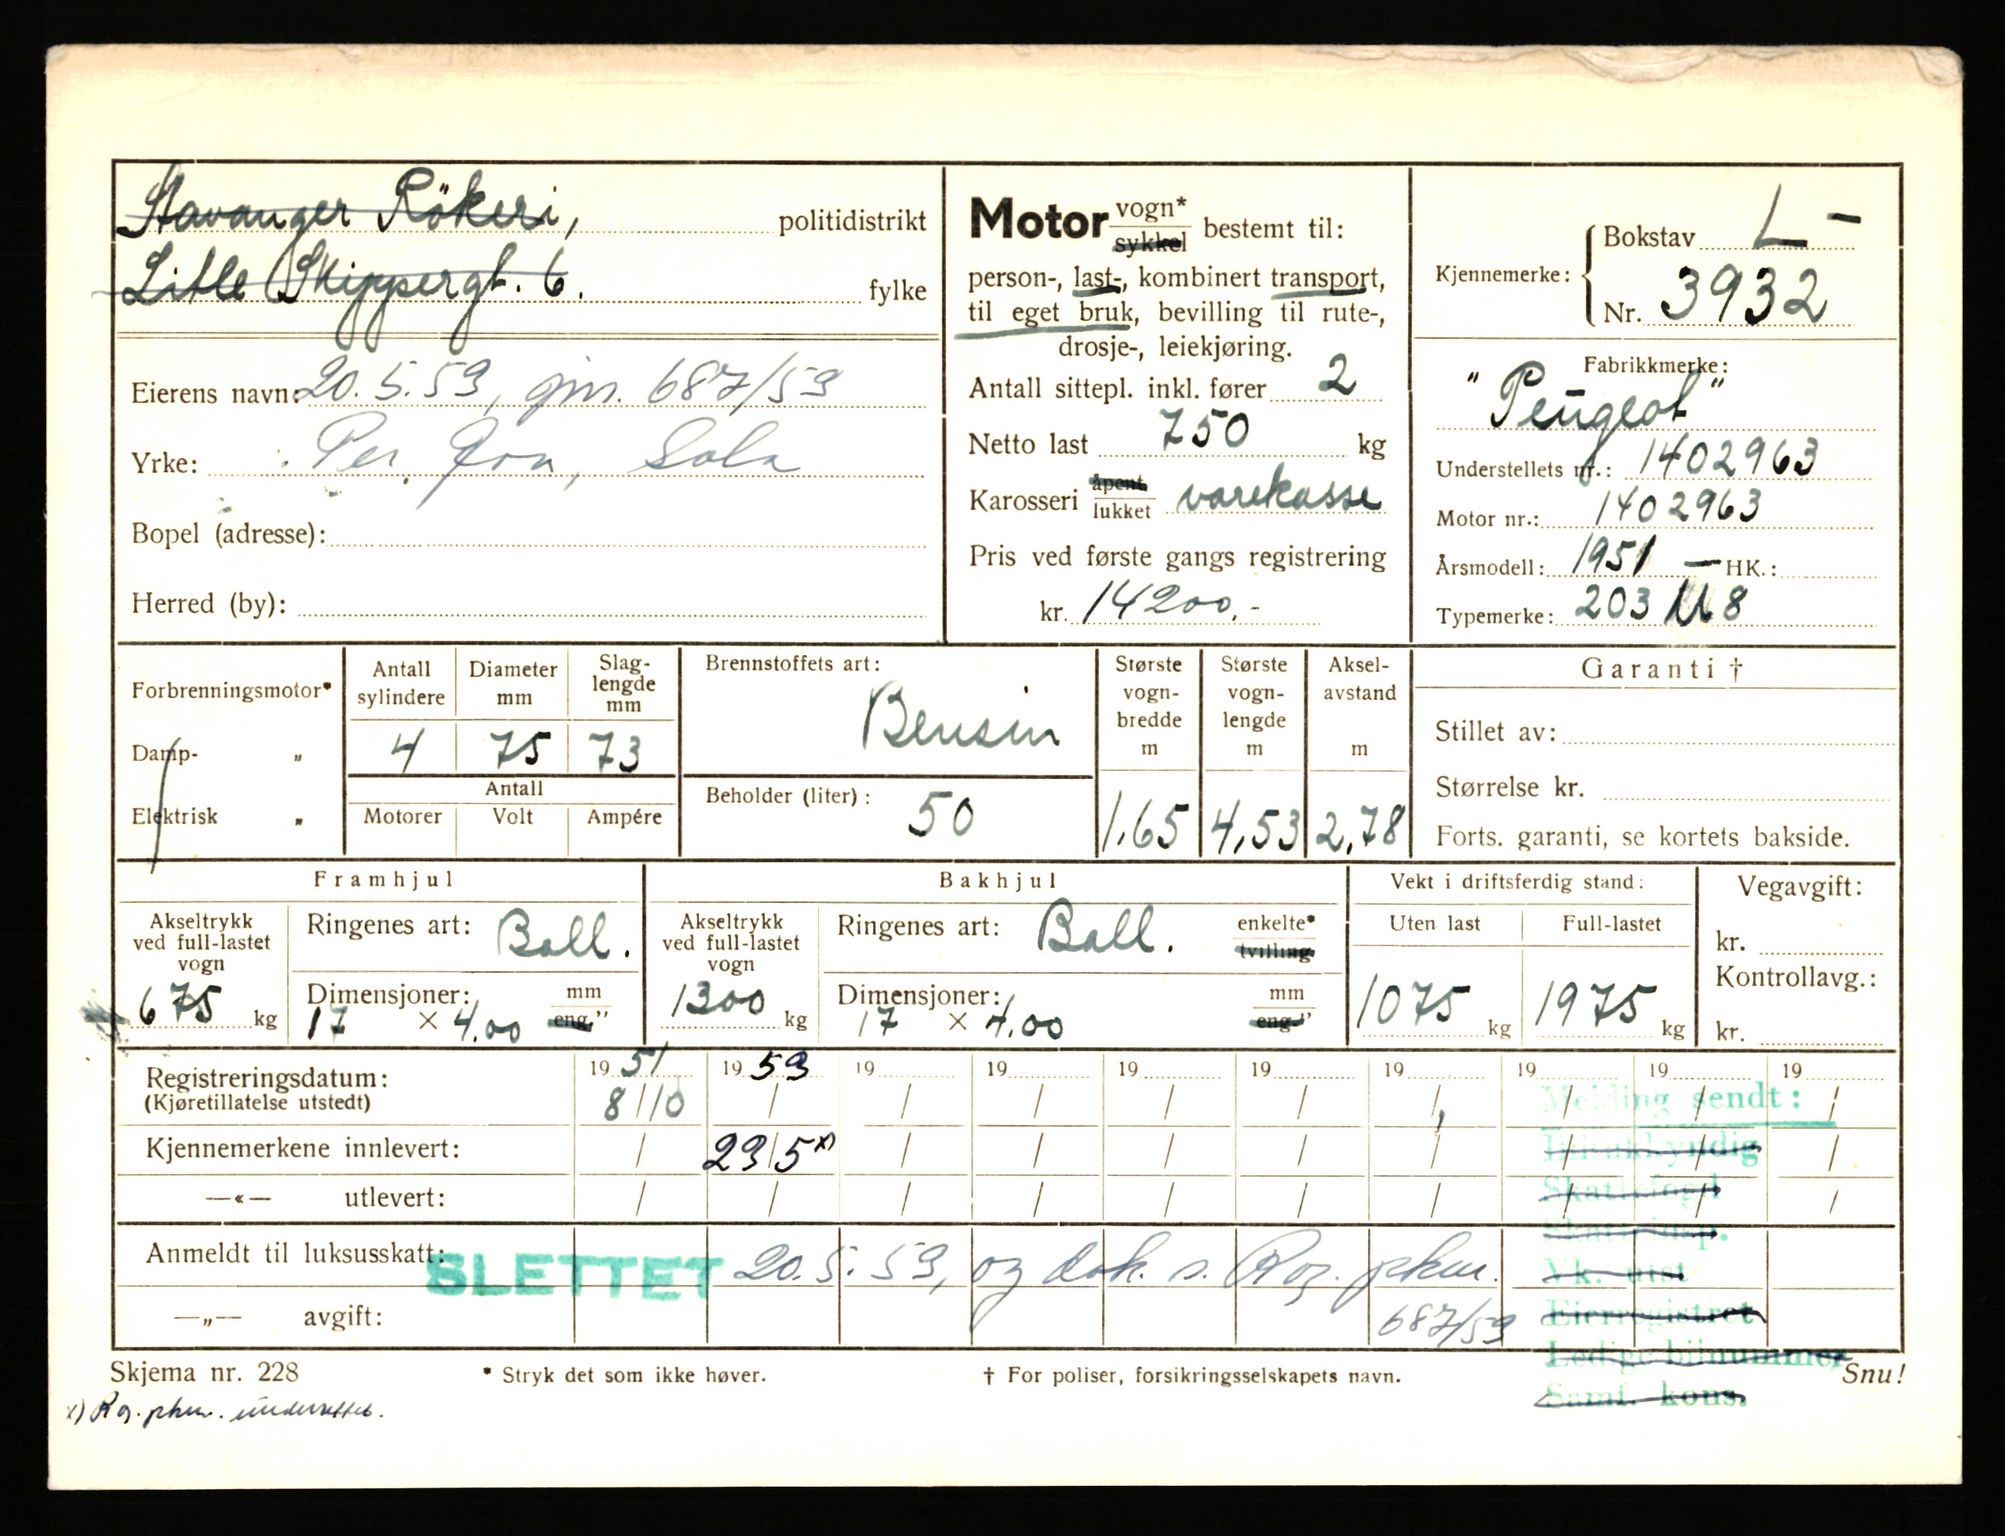 Stavanger Rökeri, politidistrikt
Litle Skippergt. 6. fylke
Eierens navn: 20.5.53, 687/53
Yrke: Per Sola
Bopel (adresse):
Herred (by):
Motor vogn* sykkel bestemt til:
person-, last-, kombinert transport,
til eget bruk, bevilling til rute-,
drosje-, leiekjøring.
Antall sittepl. inkl. fører 2
Netto last 750 kg
Karosseri åpent lukket varekasse
Pris ved første gangs registrering
kr. 14200,-
Kjennemerke: Bokstav L-
Nr. 3932
Fabrikkmerke:
"Peugeot"
Understellets nr.: 1402963
Motor nr.: 1402963
Årsmodell: 1951 — HK.:
Typemerke: 203 U 8
Forbrenningsmotor*
Damp- "
Elektrisk "
Antall sylindere 4
Diameter mm 75
Slag-lengde mm 73
Antall
Motorer Volt Ampére
Brennstoffets art:
Bensin
Beholder (liter): 50
Største vogn-bredde m 1,65
Største vogn-lengde m 4,53
Aksel-avstand m 2,78
Garanti †
Stillet av:
Størrelse kr.
Forts. garanti, se kortets bakside.
Framhjul
Akseltrykk ved full-lastet vogn 675 kg
Ringenes art: Ball.
Dimensjoner: mm
17 × 4.00 eng."
Bakhjul
Akseltrykk ved full-lastet vogn 1300 kg
Ringenes art: Ball. enkelte* tvilling
Dimensjoner: mm
17 × 4.00 eng."
Vekt i driftsferdig stand:
Uten last 1075 kg
Full-lastet 1975 kg
Vegavgift:
kr.
Kontrollavg.:
kr.
19 51 19 53 19 19 19 19 19 19 19 19
Registreringsdatum: 8/10 / / / / / / / / /
(Kjøretillatelse utstedt)
Melding sendt:
Kjennemerkene innlevert: / 23/5 x) / / / / / / / /
Bilsakkyndig
—«— utlevert: / / / / / / / / / /
Skattefogd
Skatteinsp.
Anmeldt til luksusskatt: SLETTET 20.5.53, og dok. s. Rog. pkm.
Vk. utst
—„— avgift: 687/53
Eierregistret
Ledige bilnummer
Samf. kons.
Skjema nr. 228 * Stryk det som ikke høver. † For poliser, forsikringsselskapets navn. Snu!
x) Rog. pkm. underrettet.